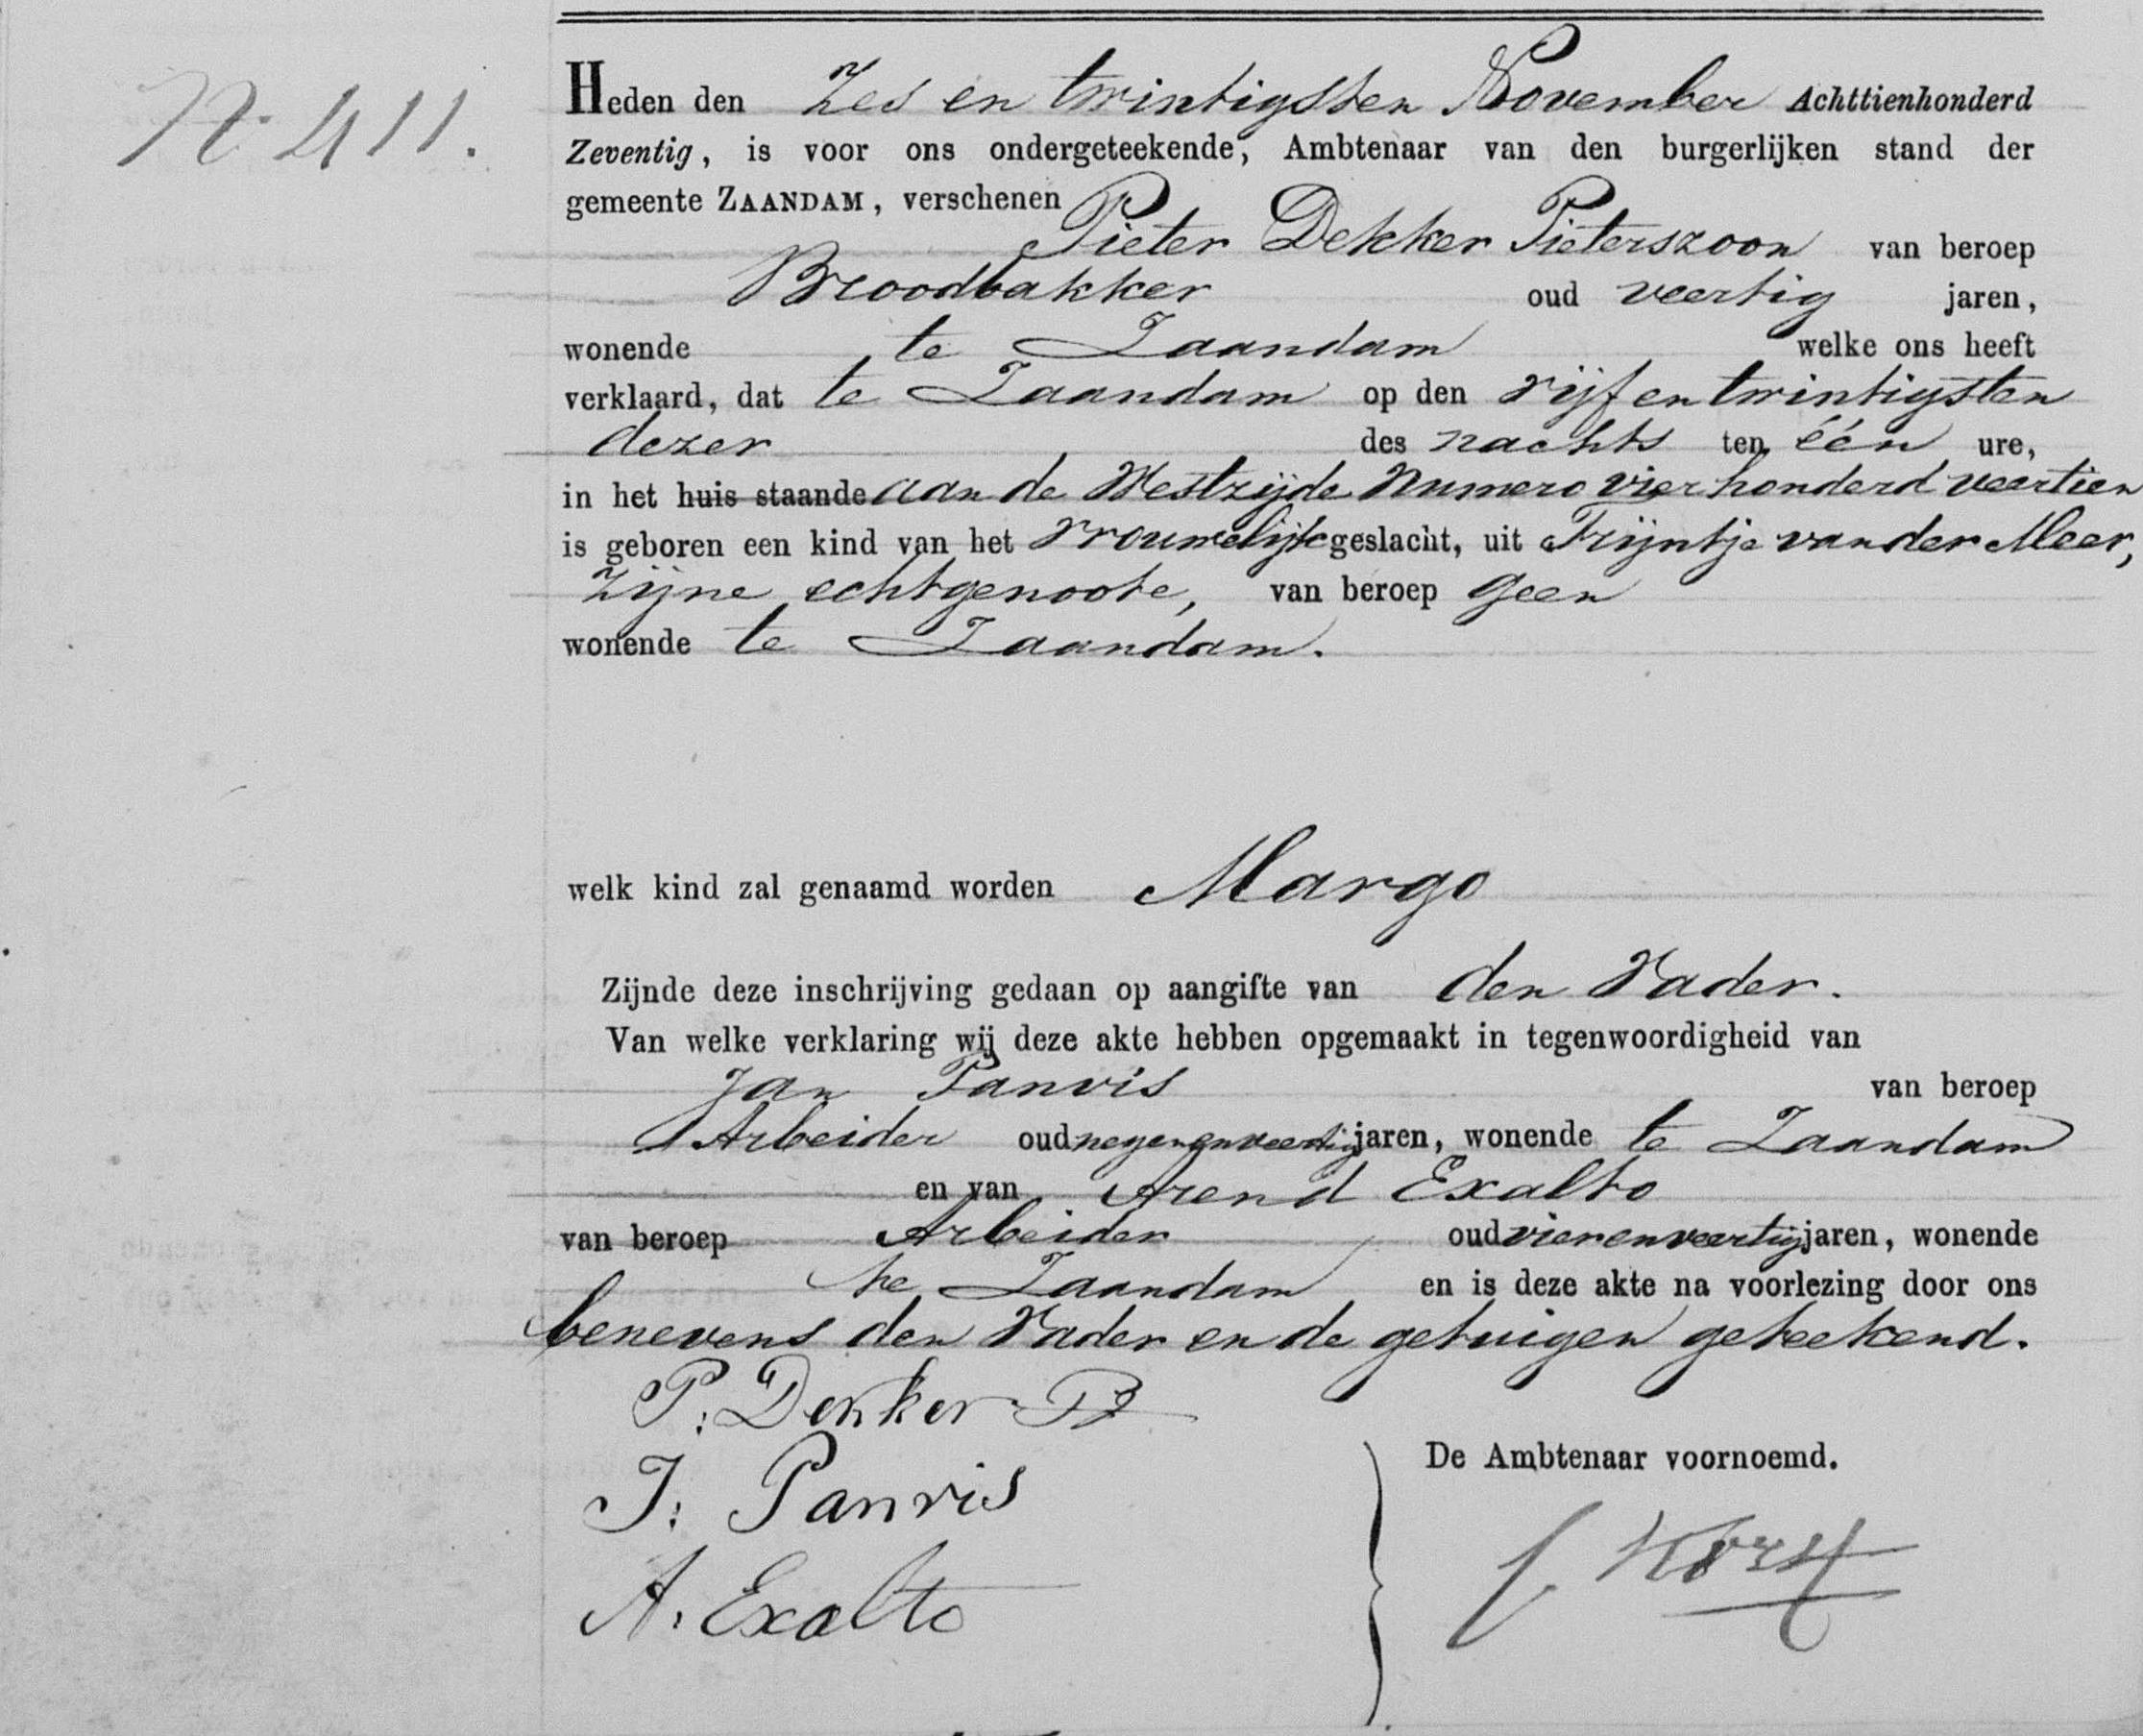 N. 411.
Heden den Zes en twintigsten November Achttienhonderd
Zeventig, is voor ons ondergeteekende, Ambtenaar van den burgerlijken stand der
gemeente ZAANDAM, verschenen
Pieter Dekker Pieterszoon van beroep
Broodbakker oud veertig jaren,
wonende te Zaandam welke ons heeft
verklaard, dat te Zaandam op den vijf en twintigsten
dezer des nachts ten één ure,
in het huis staande aan de Westzijde Numero vierhonderd veertien
is geboren een kind van het vrouwelijk geslacht, uit Trijntje van der Meer,
zijne echtgenoote, van beroep geen
wonende te Zaandam.
welk kind zal genaamd worden Margo
Zijnde deze inschrijving gedaan op aangifte van den Vader.
Van welke verklaring wij deze akte hebben opgemaakt in tegenwoordigheid van
Jan Panvis van beroep
Arbeider oud negenenveertig jaren, wonende te Zaandam
en van Arend Exalto
van beroep Arbeider oud vierenveertig jaren, wonende
te Zaandam en is deze akte na voorlezing door ons
benevens den Vader en de getuigen geteekend.
P. Dekker Pz
J. Panvis
De Ambtenaar voornoemd.
A. Exalto